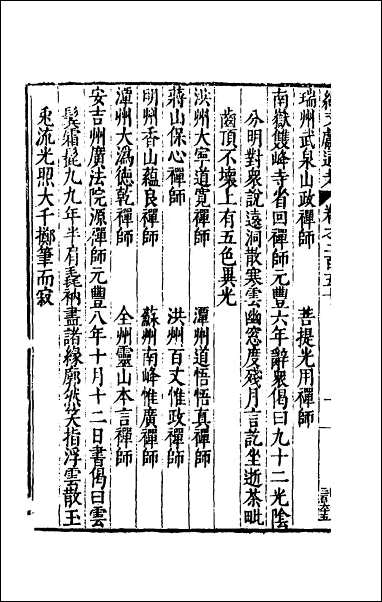 續文獻通考 卷之二百五十
瑞州武泉山政禪師　菩提光用禪師
南嶽雙峰寺省回禪師元豐六年辭衆偈曰九十二光陰
分明對衆說遠洞散寒雲幽窓度殘月言訖坐逝茶毗
齒頂不壞上有五色異光
洪州大寧道寬禪師　潭州道悟悟真禪師
蔣山保心禪師　洪州百丈惟政禪師
明州香山蘊良禪師　蘇州南峰惟廣禪師
潭州大潙德乾禪師　全州靈山本言禪師
安吉州廣法院源禪師元豐八年十月十二日書偈曰雲
鬂霜髭九九年半肩毳衲盡諸緣廓然笑指浮雲散玉
兎流光照大千擲筆而寂